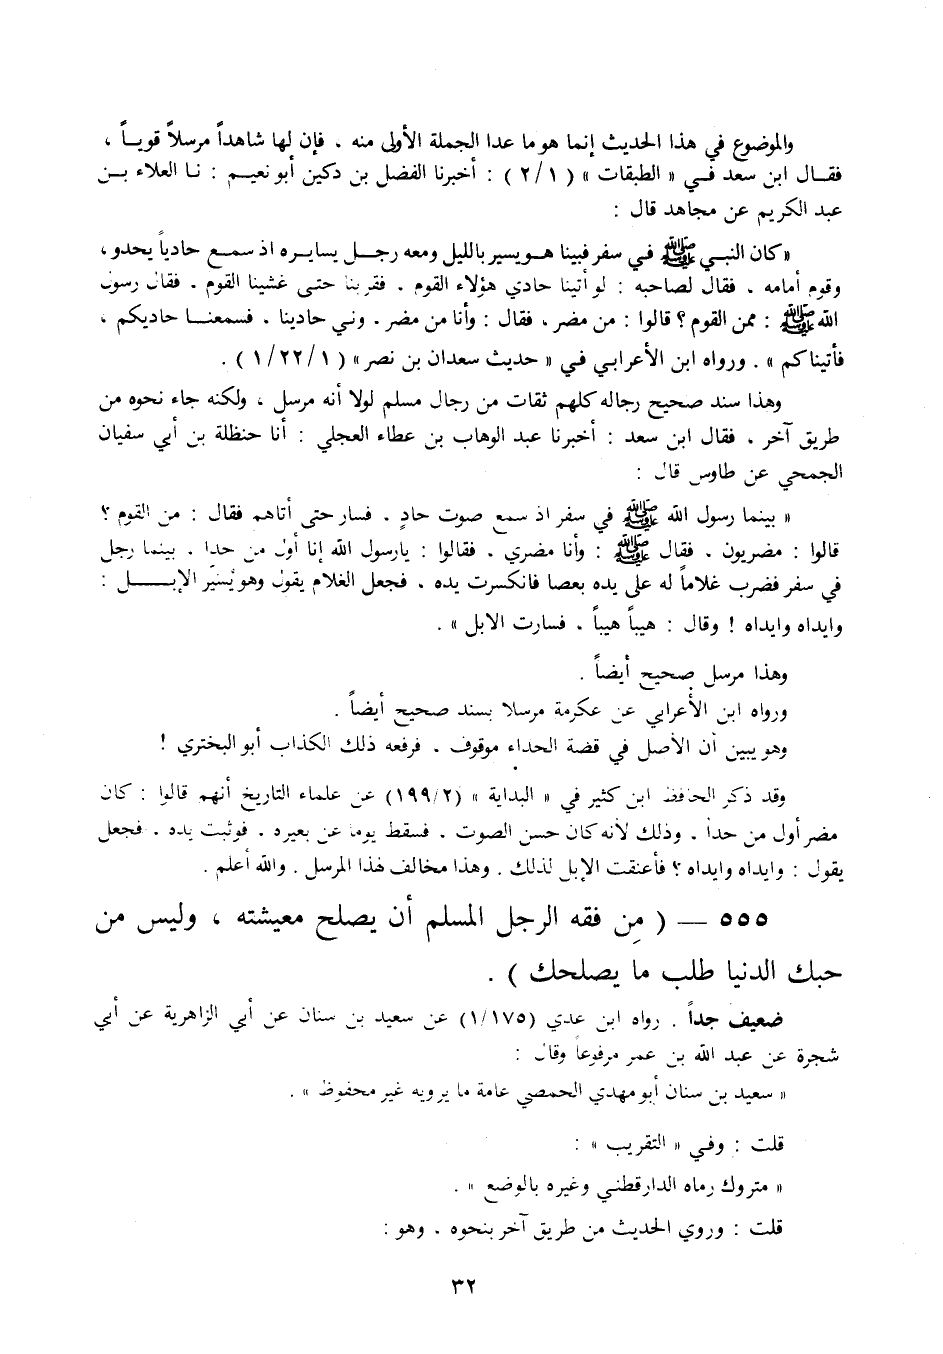 والموضوع في هذا الحديث إنما هو ما عدا الجملة الأولى منه . فإن لها شاهداً مرسلاً قوياً ،
فقال ابن سعد في « الطبقات » ( ١/ ٢ ) : أخبرنا الفضل بن دكين أبو نعيم : نا العلاء بن
عبد الكريم عن مجاهد قال :
« كان النبي ﷺ في سفر فبينا هو يسير بالليل ومعه رجل يسايره اذ سمع حادياً يحدو ،
وقوم أمامه . فقال لصاحبه : لو أتينا حادي هؤلاء القوم . فقربنا حتى غشينا القوم . فقال رسول
الله ﷺ : ممن القوم ؟ قالوا : من مضر . فقال : وأنا من مضر . وني حادينا . فسمعنا حاديكم ،
فأتيناكم » . ورواه ابن الأعرابي في « حديث سعدان بن نصر » ( ١/ ٢٢/ ١ ) .
وهذا سند صحيح رجاله كلهم ثقات من رجال مسلم لولا أنه مرسل ، ولكنه جاء نحوه من
طريق آخر . فقال ابن سعد : أخبرنا عبد الوهاب بن عطاء العجلي : أنا حنظلة بن أبي سفيان
الجمحي عن طاوس قال :
« بينما رسول الله ﷺ في سفر اذ سمع صوت حادٍ . فسار حتى أتاهم فقال : من القوم ؟
قالوا : مضريون . فقال ﷺ : وأنا مضري . فقالوا : يارسول الله إنا أول من حدا . بينما رجل
في سفر فضرب غلاماً له على يده بعصا فانكسرت يده . فجعل الغلام يقول وهو يُسيّر الإبل :
وايداه وايداه ! وقال : هيباً هيباً . فسارت الابل » .
وهذا مرسل صحيح أيضاً .
ورواه ابن الأعرابي عن عكرمة مرسلا بسند صحيح أيضاً .
وهو يبين أن الأصل في قضة الحداء موقوف . فرفعه ذلك الكذاب أبو البختري !
وقد ذكر الحافظ ابن كثير في « البداية » (٢/ ١٩٩) عن علماء التاريخ أنهم قالوا : كان
مضر أول من حدا . وذلك لأنه كان حسن الصوت . فسقط يوما عن بعيره . فوثبت يده . فجعل
يقول : وايداه وايداه ؟ فأعنقت الإبل لذلك . وهذا مخالف لهذا المرسل . والله أعلم .
٥٥٥ — ( مِن فقه الرجل المسلم أن يصلح معيشته ، وليس من
حبك الدنيا طلب ما يصلحك ) .
ضعيف جداً . رواه ابن عدي (١٧٥/ ١) عن سعيد بن سنان عن أبي الزاهرية عن أبي
شجرة عن عبد الله بن عمر مرفوعا وقال :
« سعيد بن سنان أبو مهدي الحمصي عامة ما يرويه غير محفوظ » .
قلت : وفي « التقريب » :
« متروك رماه الدارقطني وغيره بالوضع » .
قلت : وروي الحديث من طريق آخر بنحوه . وهو :
٣٢